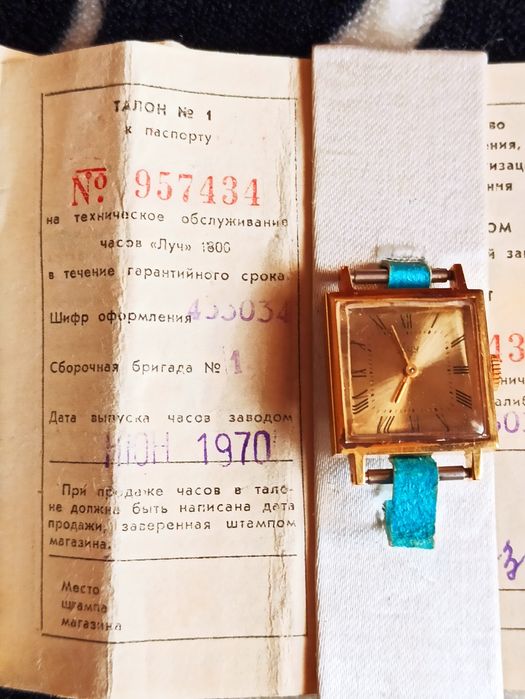 ТАЛОН № 1
к паспорту
№ 957434
на техническое обслуживание
часов «Луч» 1800
в течение гарантийного срока.
Шифр оформления 455034
Сборочная бригада № 1
Дата выпуска часов заводом
ИЮН 1970
При продаже часов в тало-
не должна быть написана дата
продажи, заверенная штампом
магазина.
Место
штампа
магазина